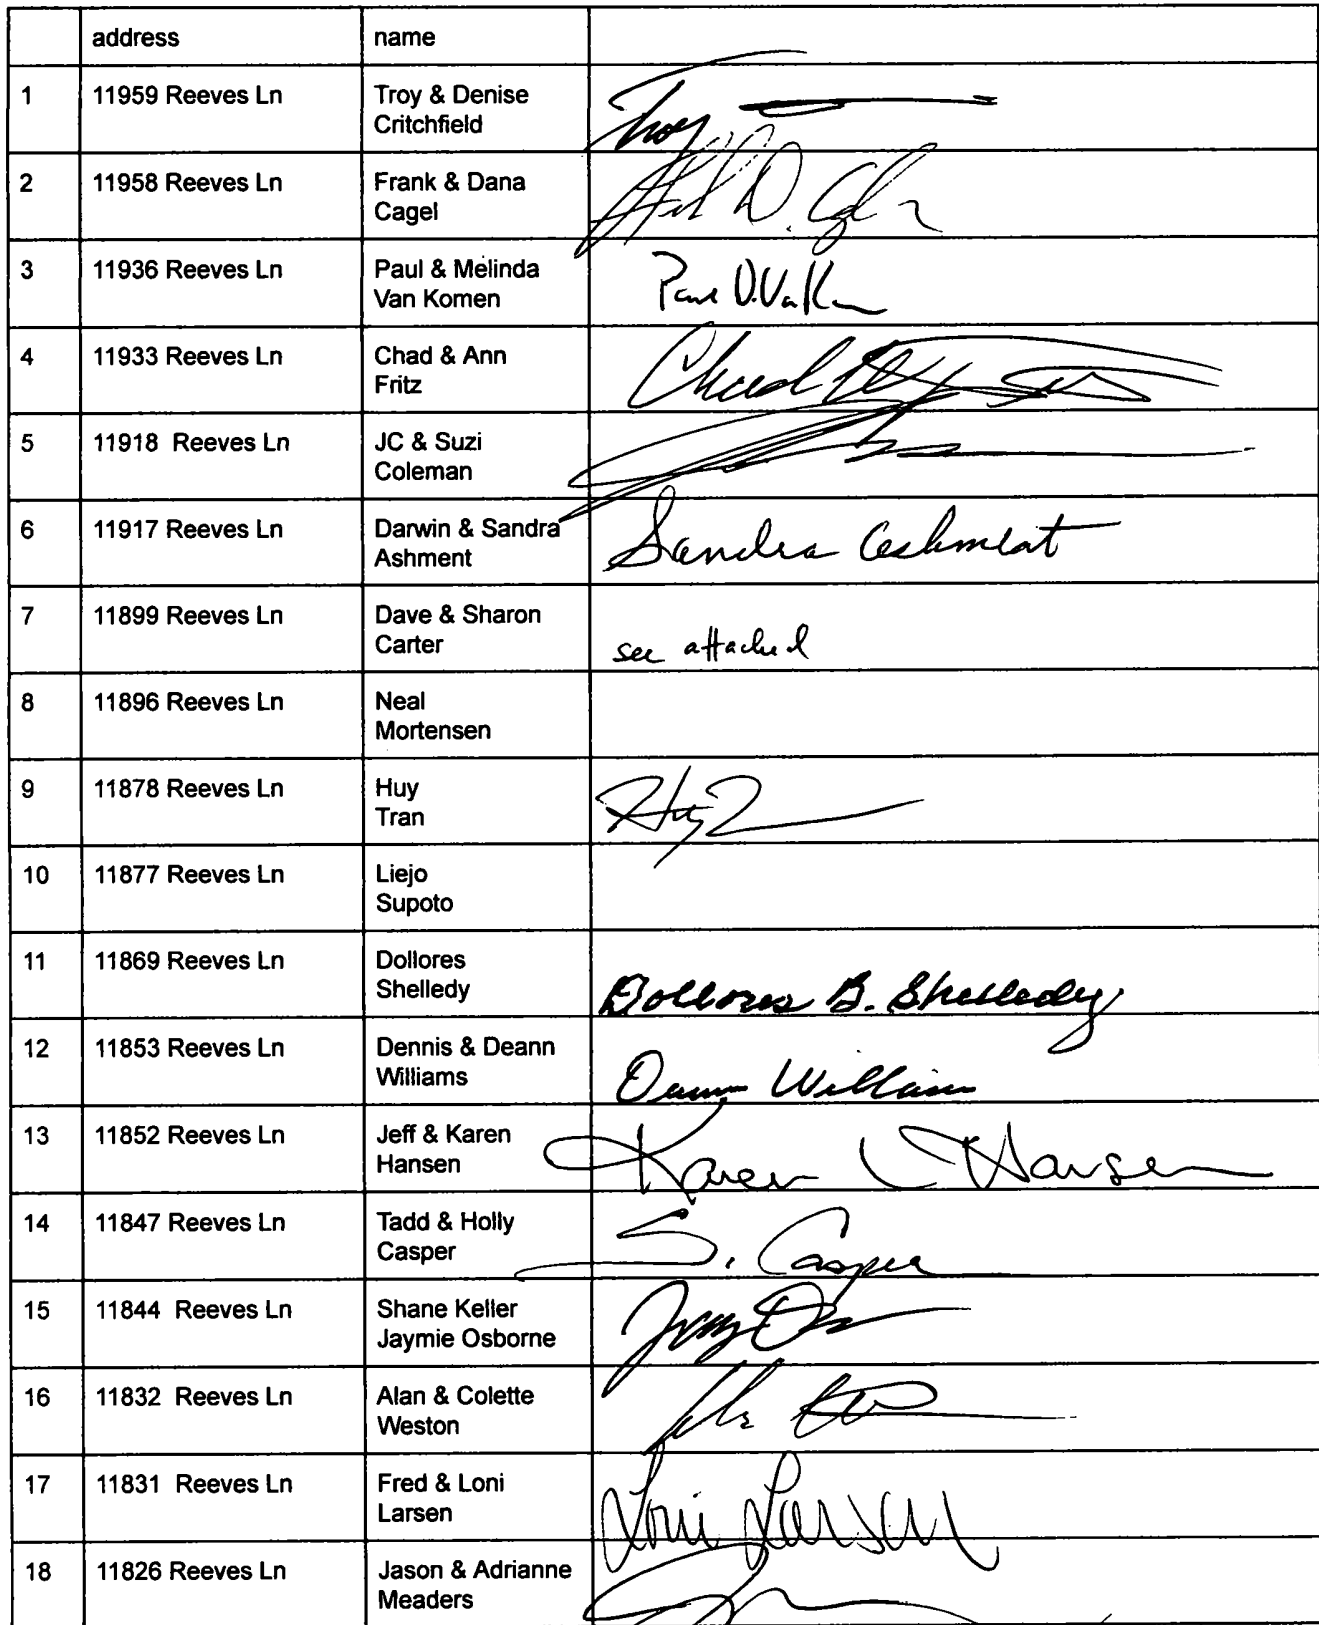 address name
1 11959 Reeves Ln Troy & Denise
Critchfield Troy
2 11958 Reeves Ln Frank & Dana
Cagel
3 11936 Reeves Ln Paul & Melinda
Van Komen Paul D. VaK
4 11933 Reeves Ln Chad & Ann
Fritz Chad
5 11918 Reeves Ln JC & Suzi
Coleman
6 11917 Reeves Ln Darwin & Sandra
Ashment Sandra Ashment
7 11899 Reeves Ln Dave & Sharon
Carter see attached
8 11896 Reeves Ln Neal
Mortensen
9 11878 Reeves Ln Huy
Tran Huy
10 11877 Reeves Ln Liejo
Supoto
11 11869 Reeves Ln Dollores
Shelledy Dollores B. Shelledy
12 11853 Reeves Ln Dennis & Deann
Williams Williams
13 11852 Reeves Ln Jeff & Karen
Hansen Karen Hansen
14 11847 Reeves Ln Tadd & Holly
Casper S. Casper
15 11844 Reeves Ln Shane Keller
Jaymie Osborne
16 11832 Reeves Ln Alan & Colette
Weston
17 11831 Reeves Ln Fred & Loni
Larsen Loni Larsen
18 11826 Reeves Ln Jason & Adrianne
Meaders